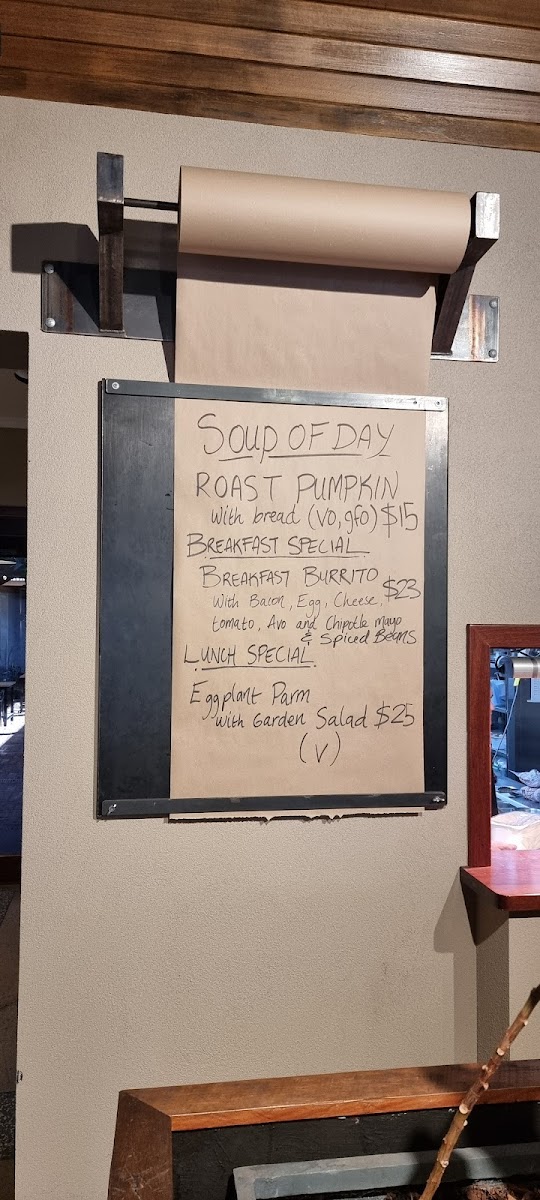 SOUP OF DAY
ROAST PUMPKIN
with bread (VO, gfo) $15
BREAKFAST SPECIAL
BREAKFAST BURRITO
With Bacon, Egg, Cheese, $23
tomato, Avo and Chipotle mayo
& Spiced Beans
LUNCH SPECIAL
Eggplant Parm
with Garden Salad $25
(V)